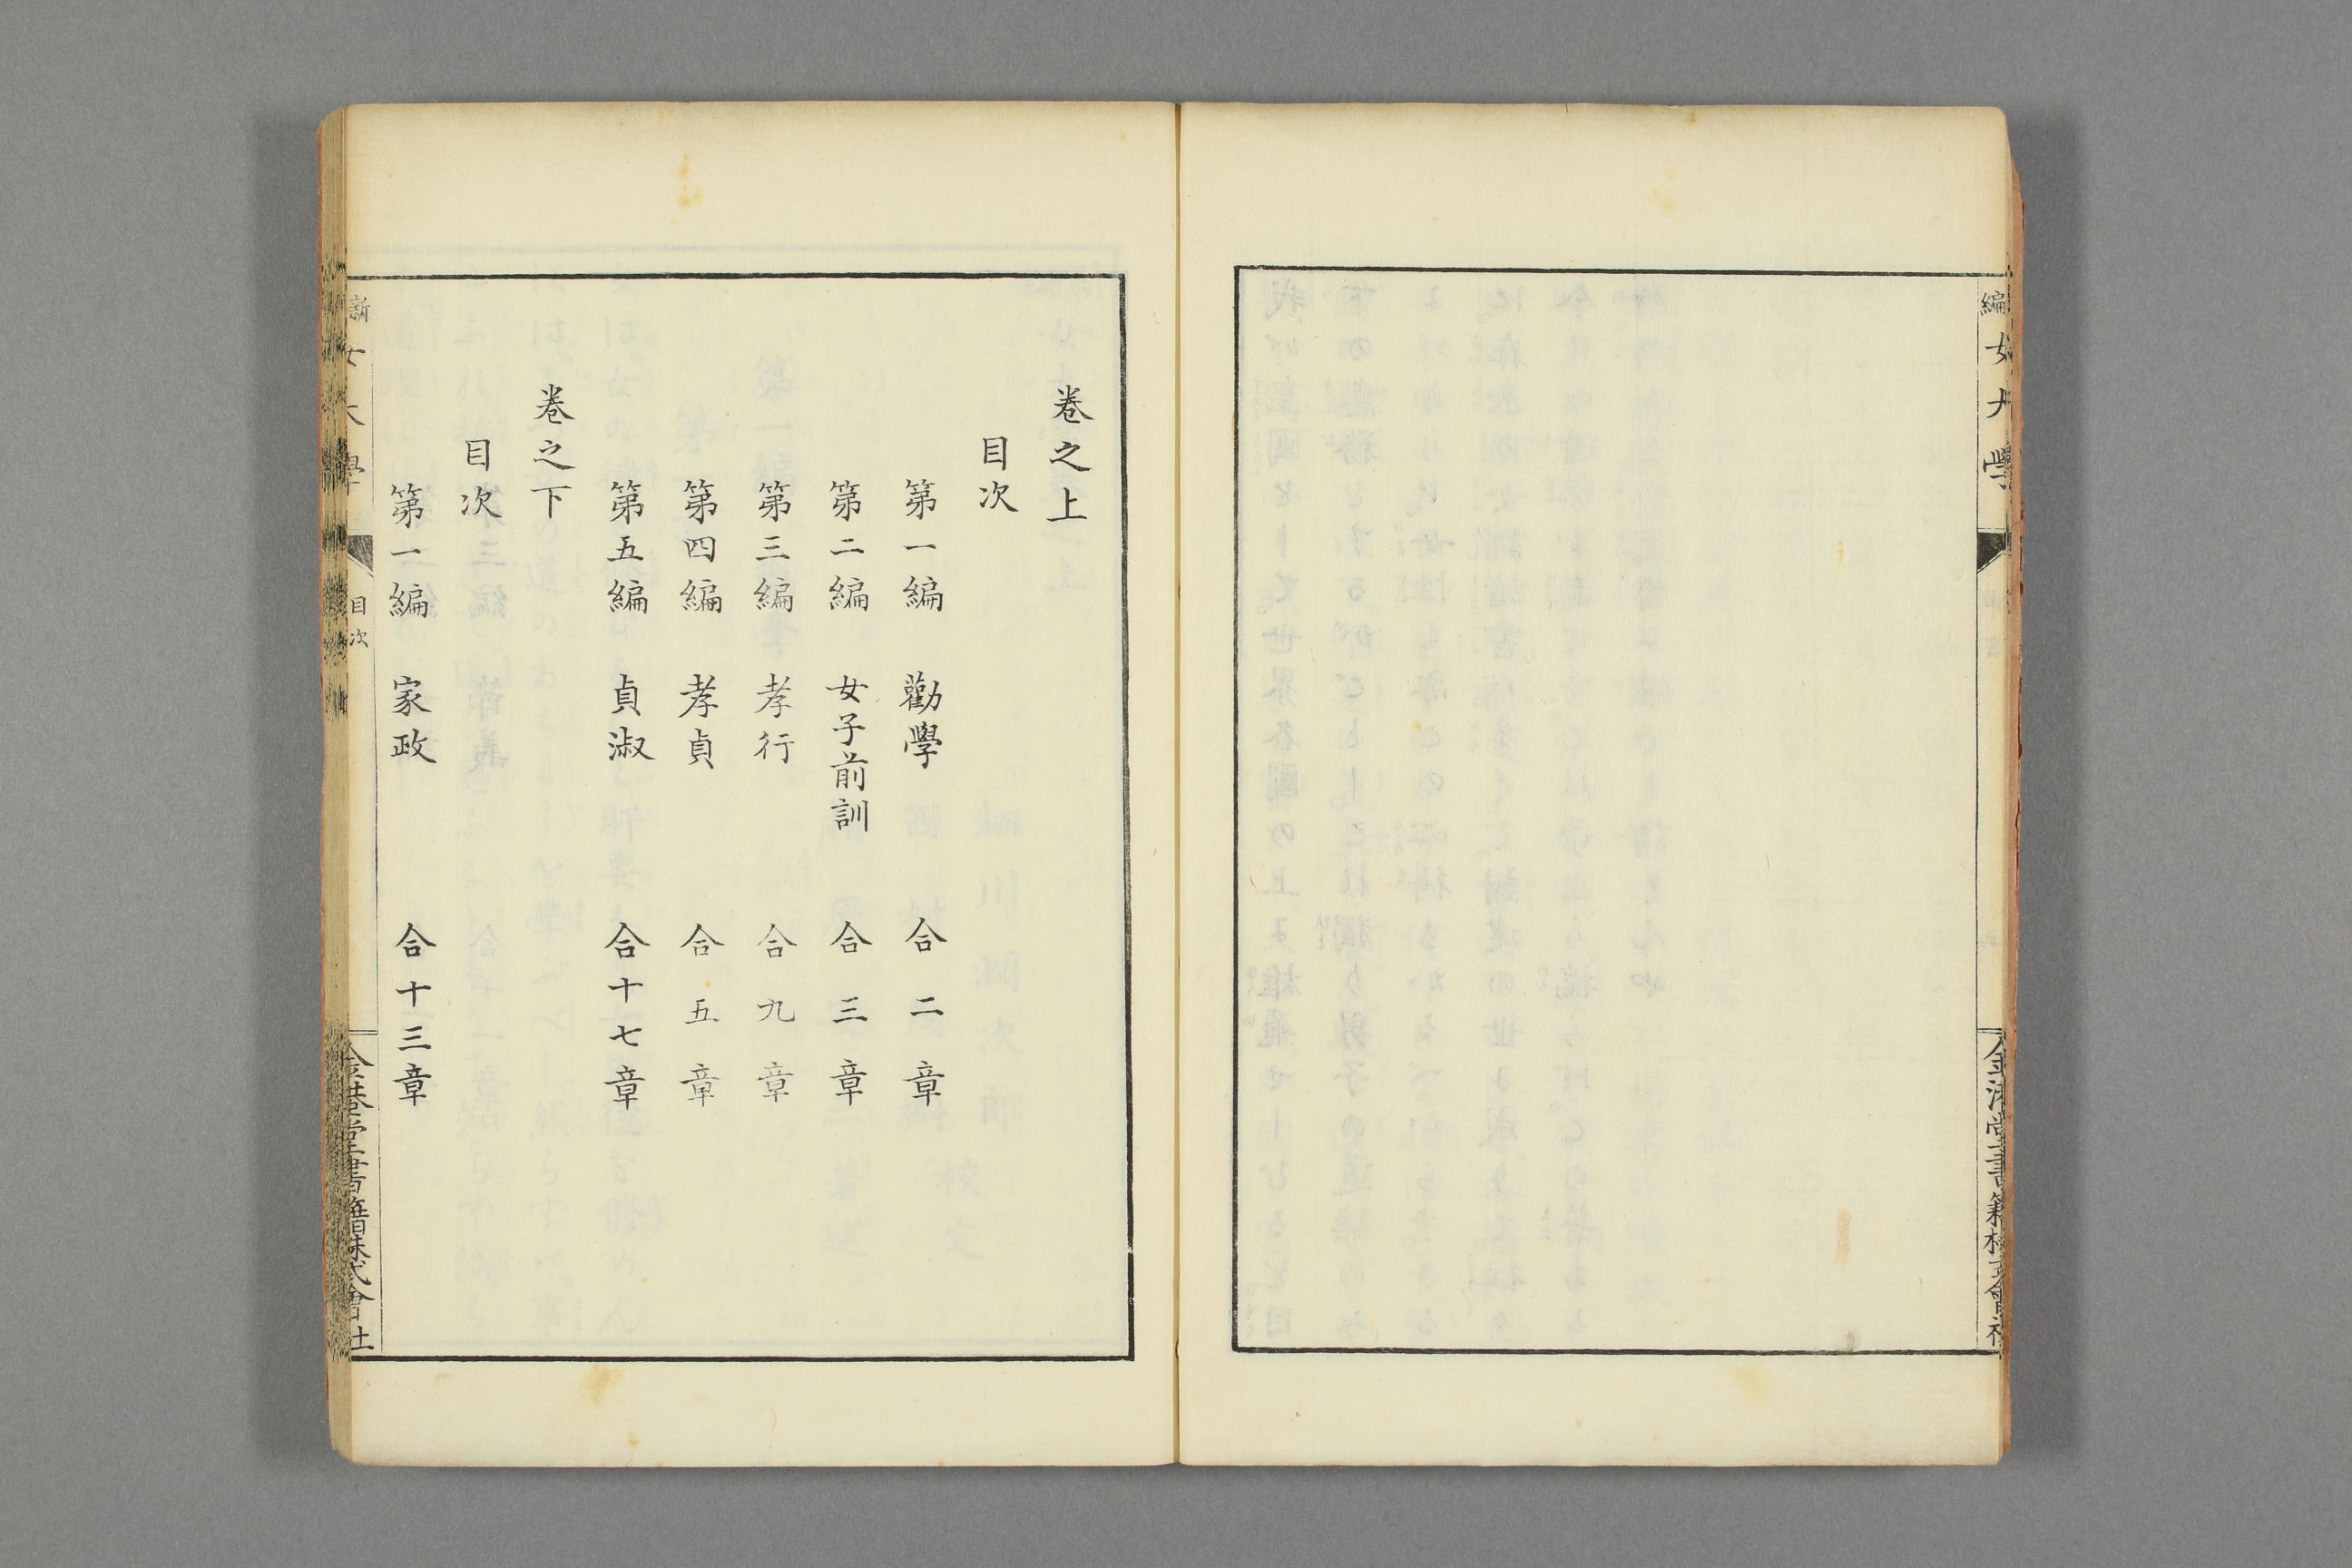 編 女大學
金港堂書籍株式會社
卷之上
目次
第一編 勸學 合二章
第二編 女子前訓 合三章
第三編 孝行 合九章
第四編 孝貞 合五章
第五編 貞淑 合十七章
卷之下
目次
第一編 家政 合十三章
新 女大學 目次
金港堂書籍株式會社